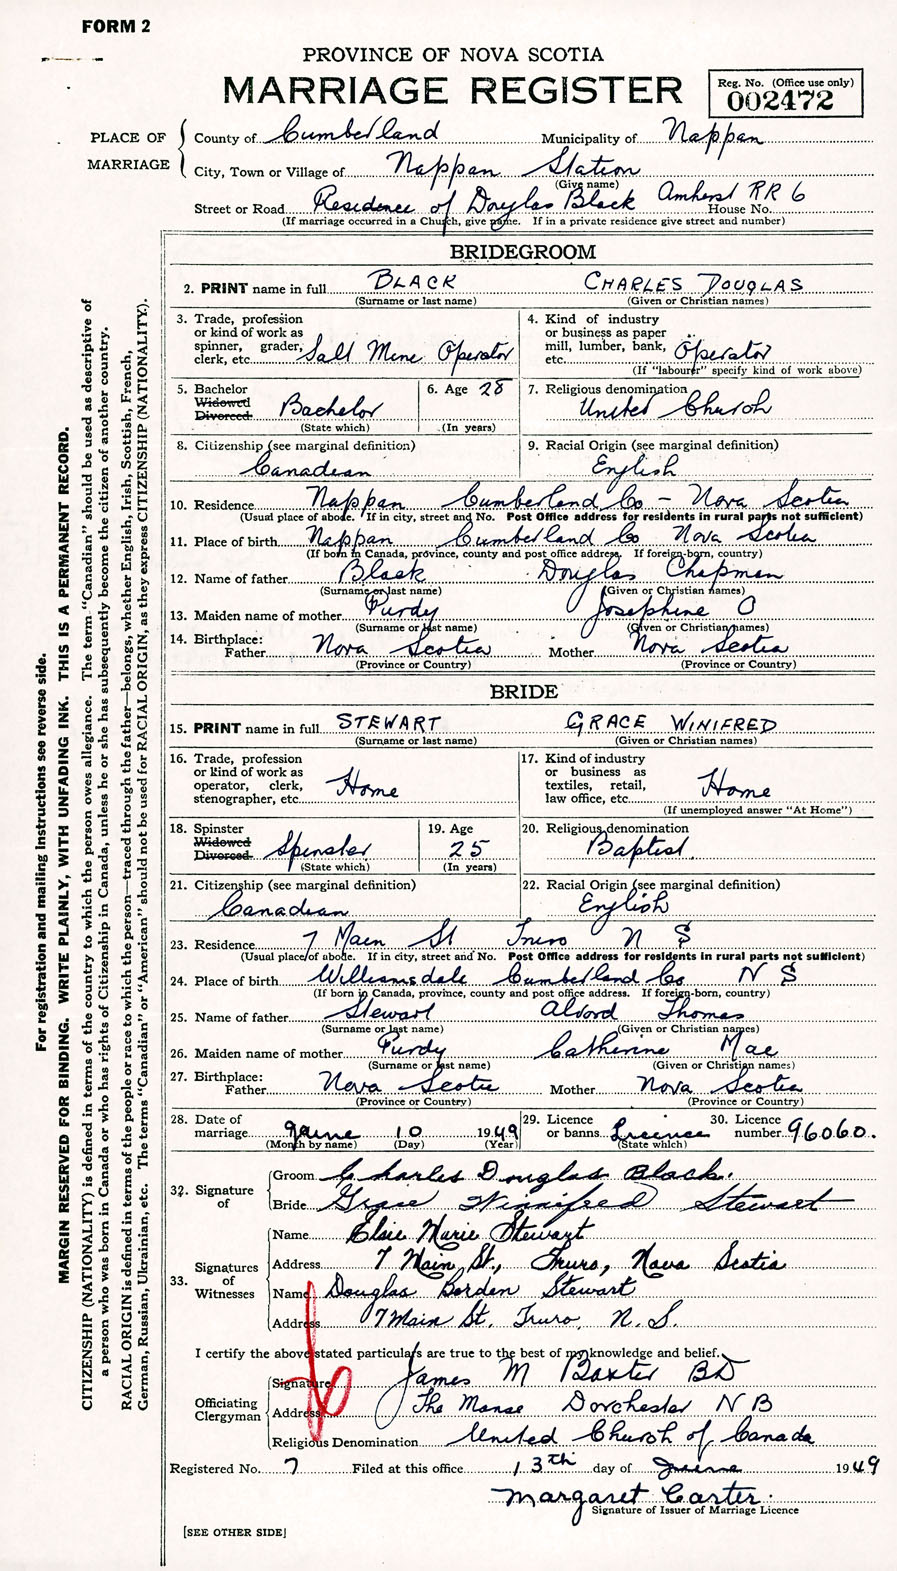 FORM 2
PROVINCE OF NOVA SCOTIA
MARRIAGE REGISTER
Reg. No. (Office use only)
002472
PLACE OF MARRIAGE
County of Cumberland Municipality of Nappan
City, Town or Village of Nappan Station
(Give name)
Street or Road Residence of Douglas Black Amherst RR 6 House No.
(If marriage occurred in a Church, give name. If in a private residence give street and number)
BRIDEGROOM
2. PRINT name in full BLACK CHARLES DOUGLAS
(Surname or last name) (Given or Christian names)
3. Trade, profession or kind of work as spinner, grader, clerk, etc. Salt Mine Operator
4. Kind of industry or business as paper mill, lumber, bank, etc. Operator
(If "labourer" specify kind of work above)
5. Bachelor Widowed Divorced Bachelor
(State which)
6. Age 28
(In years)
7. Religious denomination United Church
8. Citizenship (see marginal definition) Canadian
9. Racial Origin (see marginal definition) English
10. Residence Nappan Cumberland Co - Nova Scotia
(Usual place of abode. If in city, street and No. Post Office address for residents in rural parts not sufficient)
11. Place of birth Nappan Cumberland Co Nova Scotia
(If born in Canada, province, county and post office address. If foreign-born, country)
12. Name of father Black Douglas Chapman
(Surname or last name) (Given or Christian names)
13. Maiden name of mother Purdy Josephine O
(Surname or last name) (Given or Christian names)
14. Birthplace: Father Nova Scotia Mother Nova Scotia
(Province or Country) (Province or Country)
BRIDE
15. PRINT name in full STEWART GRACE WINIFRED
(Surname or last name) (Given or Christian names)
16. Trade, profession or kind of work as operator, clerk, stenographer, etc. Home
17. Kind of industry or business as textiles, retail, law office, etc. Home
(If unemployed answer "At Home")
18. Spinster Widowed Divorced Spinster
(State which)
19. Age 25
(In years)
20. Religious denomination Baptist.
21. Citizenship (see marginal definition) Canadian
22. Racial Origin (see marginal definition) English
23. Residence 7 Main St Truro N S
(Usual place of abode. If in city, street and No. Post Office address for residents in rural parts not sufficient)
24. Place of birth Williamsdale Cumberland Co. N S
(If born in Canada, province, county and post office address. If foreign-born, country)
25. Name of father Stewart Alvord Thomas
(Surname or last name) (Given or Christian names)
26. Maiden name of mother Purdy Catherine Mae
(Surname or last name) (Given or Christian names)
27. Birthplace: Father Nova Scotia Mother Nova Scotia
(Province or Country) (Province or Country)
28. Date of marriage June 10 1949
(Month by name) (Day) (Year)
29. Licence or banns Licence
(State which)
30. Licence number 96060.
32. Signature of
Groom Charles Douglas Black.
Bride Grace Winnifred Stewart
33. Signatures of Witnesses
Name Elsie Marie Stewart
Address 7 Main St., Truro, Nova Scotia
Name Douglas Borden Stewart
Address 7 Main St. Truro, N. S.
I certify the above stated particulars are true to the best of my knowledge and belief.
Officiating Clergyman
Signature James M Baxter BD
Address The Manse Dorchester N B
Religious Denomination United Church of Canada
Registered No. 7 Filed at this office 13th day of June 1949
Margaret Carter.
Signature of Issuer of Marriage Licence
[SEE OTHER SIDE]
For registration and mailing instructions see reverse side.
MARGIN RESERVED FOR BINDING. WRITE PLAINLY, WITH UNFADING INK. THIS IS A PERMANENT RECORD.
CITIZENSHIP (NATIONALITY) is defined in terms of the country to which the person owes allegiance. The term "Canadian" should be used as descriptive of
a person who was born in Canada or who has rights of Citizenship in Canada, unless he or she has subsequently become the citizen of another country.
RACIAL ORIGIN is defined in terms of the people or race to which the person—traced through the father—belongs, whether English, Irish, Scottish, French,
German, Russian, Ukrainian, etc. The terms "Canadian" or "American" should not be used for RACIAL ORIGIN, as they express CITIZENSHIP (NATIONALITY).